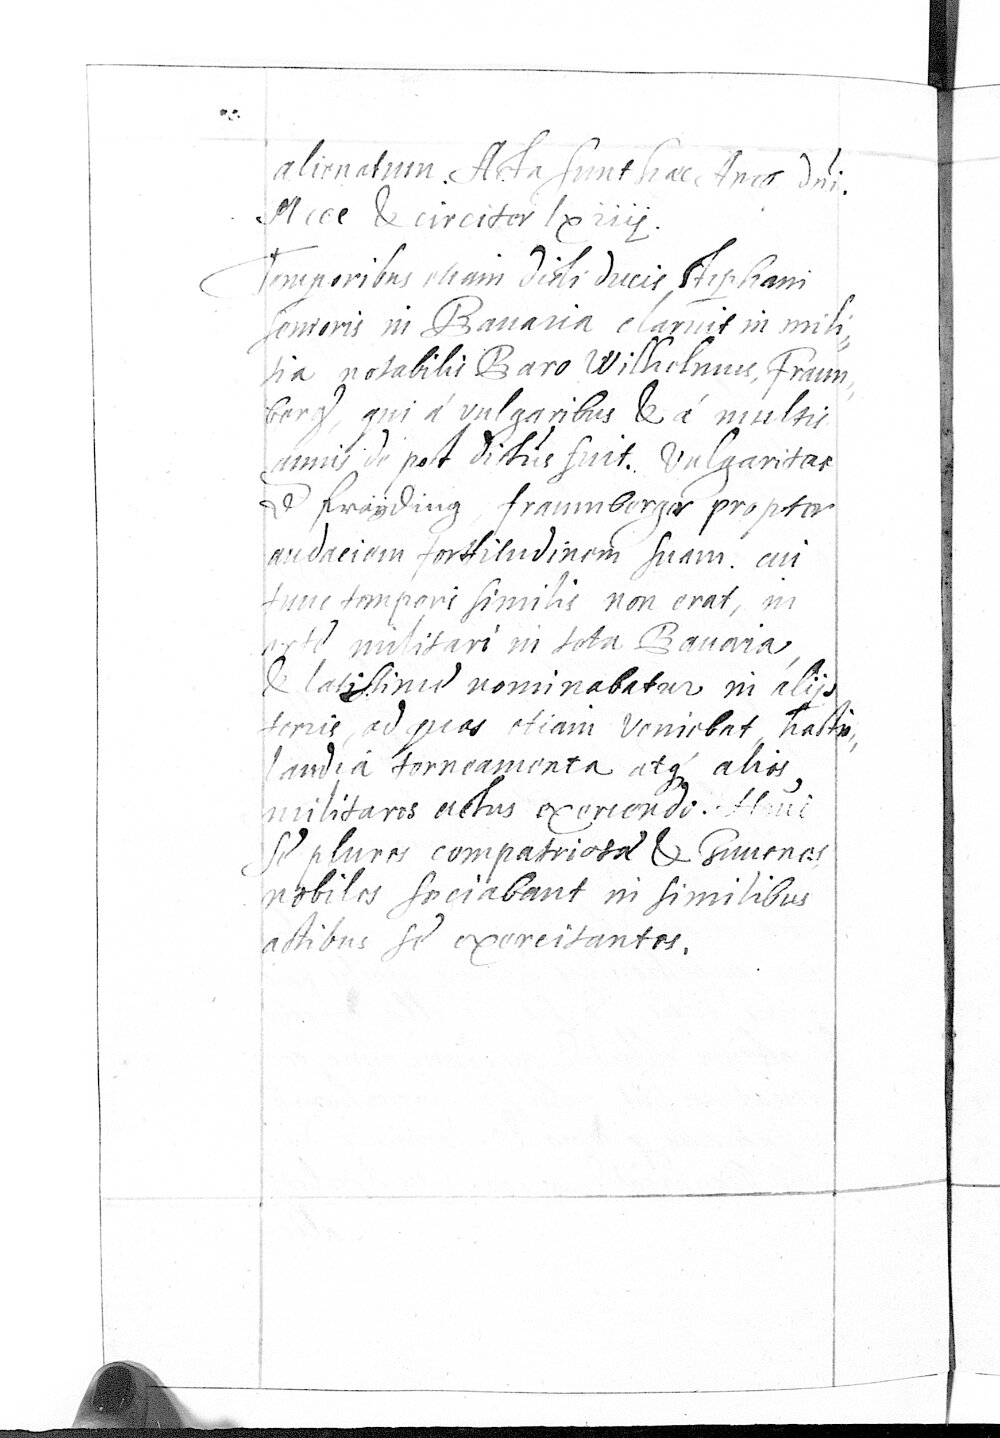 alienatum. Acta sunt haec Anno dni.
Mccc & circiter lxiiij.
Temporibus etiam dicti ducis Stephani
senioris in Bauaria claruit in mili„
tia notabilis Baro Wilhelmus, Fraun„
berg, qui á vulgaribus & á multis
annis de post dictus fuit. Vulgariter
D fröyding, fraunberger propter
audaciem fortitudinem suam. cui
tunc temporis similis non erat, in
arte militari in tota Bauaria,
& latissime nominabatur in alijs
terris, ad quas etiam veniebat, hasti„
ludia torneamenta atq3 alios
militares actus exercendo. Huic
se plures compatriotae & Iuuenes
nobiles sociabant in similibus
actibus se exercitantes.